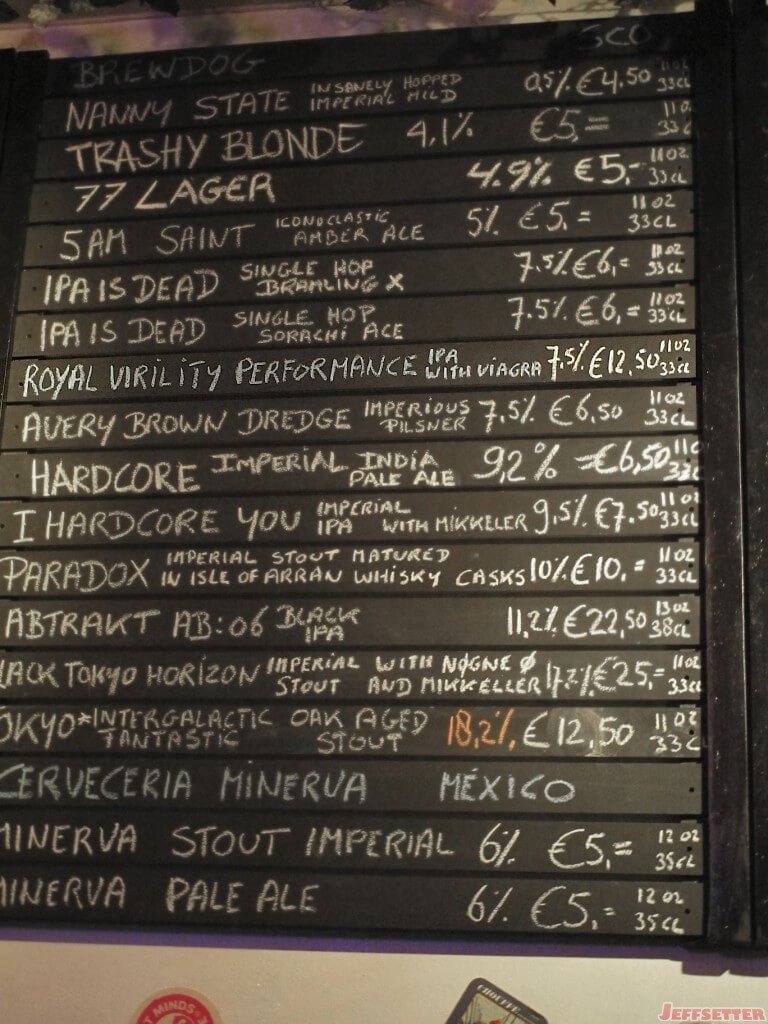 BREWDOG SCO
NANNY STATE INSANELY HOPPED IMPERIAL MILD 0,5% €4.50 11 OZ 33CL
TRASHY BLONDE 4,1% €5,= 11 OZ 33CL
77 LAGER 4.9% €5,- 11 OZ 33CL
5AM SAINT ICONOCLASTIC AMBER ALE 5% €5,= 11 OZ 33CL
IPA IS DEAD SINGLE HOP BRAMLING X 7.5% €6,= 11 OZ 33CL
IPA IS DEAD SINGLE HOP SORACHI ACE 7.5% €6,= 11 OZ 33CL
ROYAL VIRILITY PERFORMANCE IPA WITH VIAGRA 7,5% €12,50 11 OZ 33CL
AVERY BROWN DREDGE IMPERIOUS PILSNER 7,5% €6,50 11 OZ 33CL
HARDCORE IMPERIAL INDIA PALE ALE 9,2% €6,50 11 O 33C
I HARDCORE YOU IMPERIAL IPA WITH MIKKELER 9,5% €7.50 11 OZ 33CL
PARADOX IMPERIAL STOUT MATURED IN ISLE OF ARRAN WHISKY CASKS 10% €10,= 11 OZ 33CL
ABTRAKT AB:06 BLACK IPA 11,2% €22,50 13 OZ 38CL
LACK TOKYO HORIZON IMPERIAL STOUT WITH NØGNE Ø AND MIKKELLER 17,2% €25,= 11 OZ 33CL
OKYO* INTERGALACTIC FANTASTIC OAK AGED STOUT 18,2% €12,50 11 OZ 33CL
CERVECERIA MINERVA MÉXICO
MINERVA STOUT IMPERIAL 6% €5,= 12 OZ 35CL
MINERVA PALE ALE 6% €5,= 12 OZ 35CL
T MINDS
CHOUFFE
JEFFSETTER